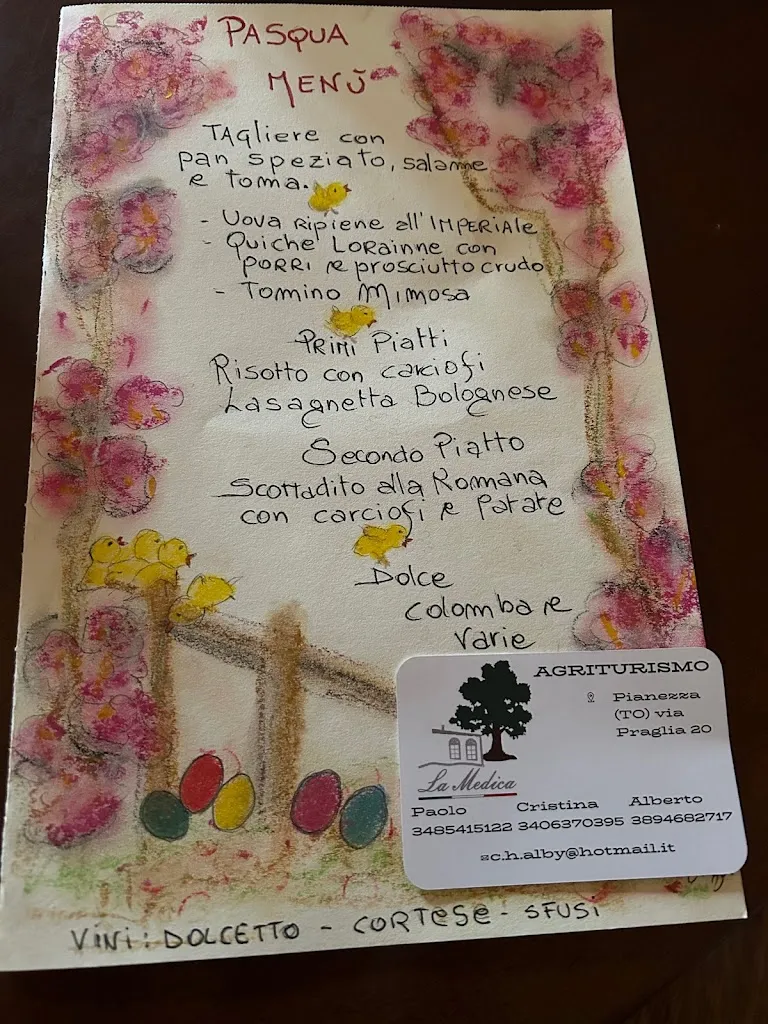 PASQUA
MENÙ
TAgliere con
pan speziato, salame
e toma.
- Uova Ripiene all'IMPERIALE
- Quiche LORAINNE con
PORRI e prosciutto crudo
- Tomino Mimosa
PRIMI Piatti
Risotto con carciofi
Lasagnetta Bolognese
Secondo Piatto
Scottadito alla Romana
con carciofi e Patate
Dolce
colomba e
varie
AGRITURISMO
Pianezza
(TO) via
Praglia 20
La Medica
Paolo Cristina Alberto
3485415122 3406370395 3894682717
sc.h.alby@hotmail.it
VINI: DOLCETTO - CORTESE - SFUSI